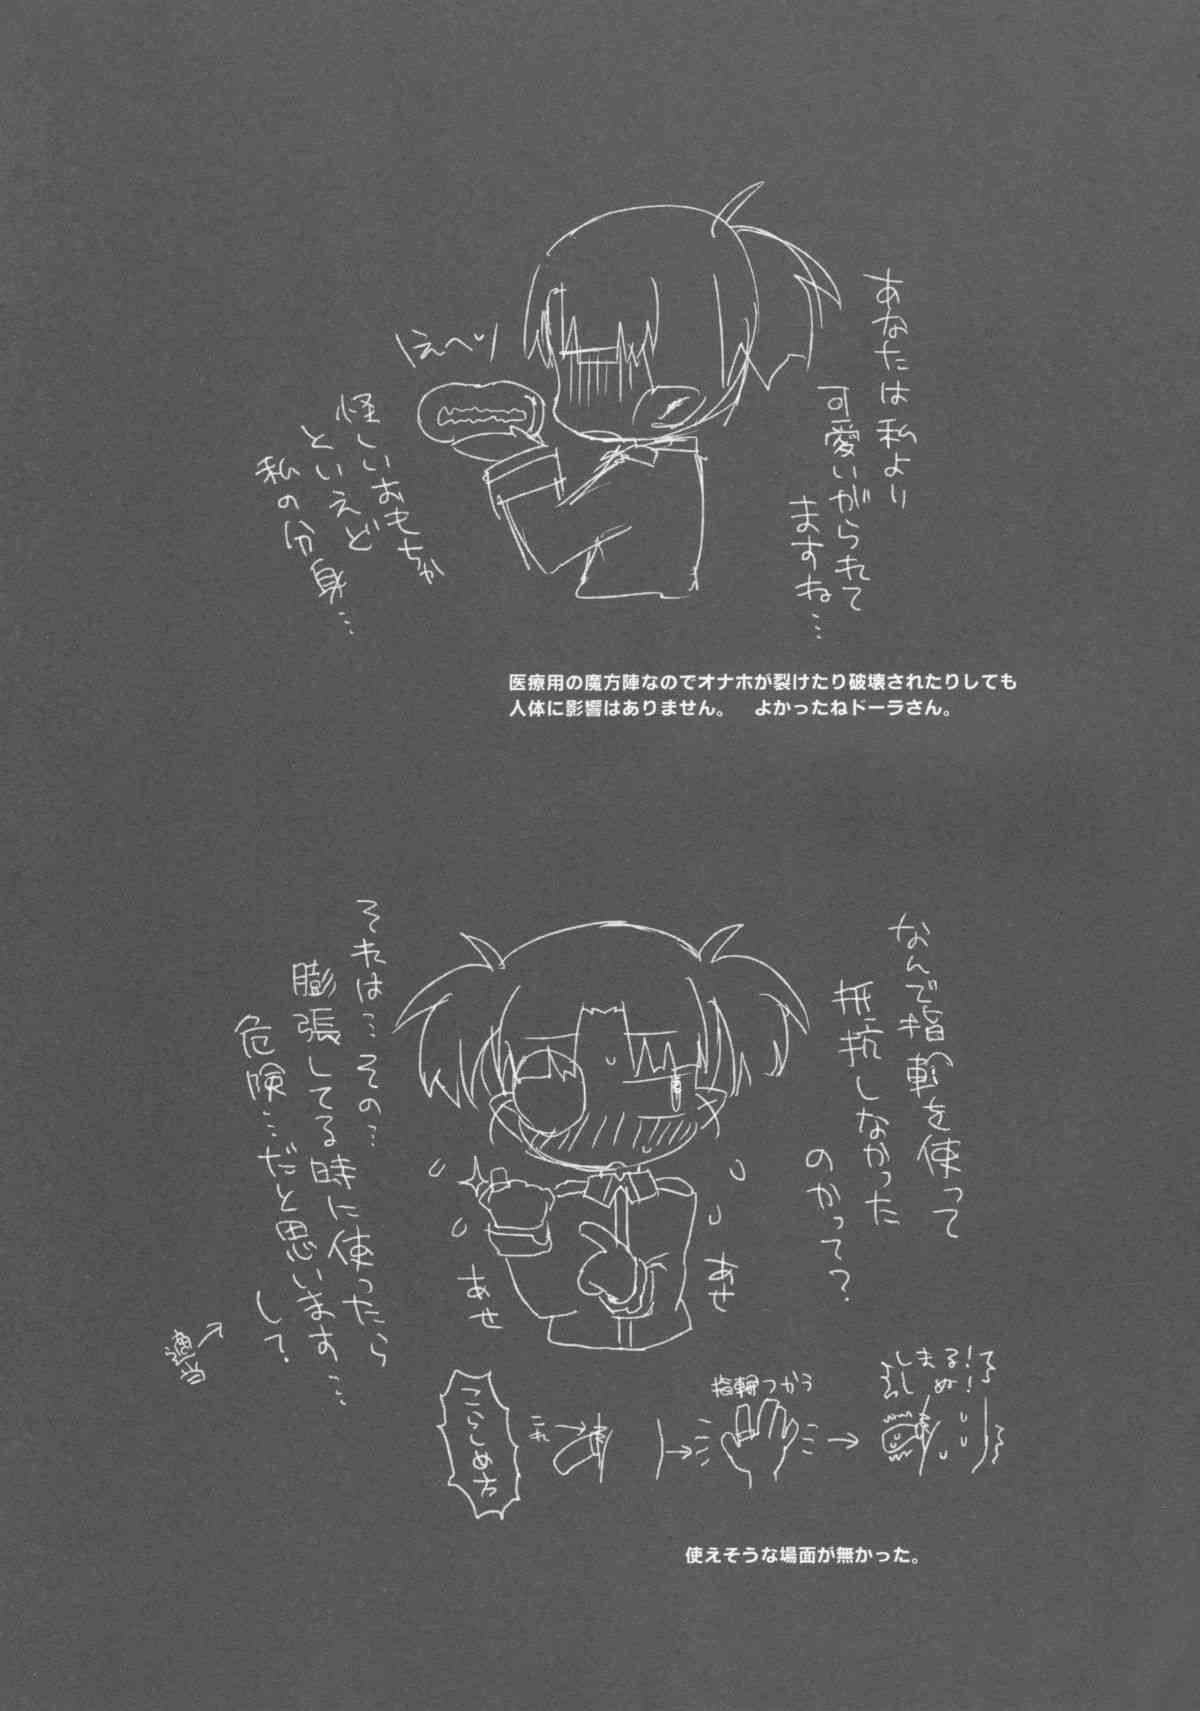 あなたは私より
可愛いがられて
ますね…
けぇへッ
怪しいおもちゃ
といえど
私の分身…
医療用の魔方陣なのでオナホが裂けたり破壊されたりしても
人体に影響はありません。　よかったねドーラさん。
なんで指輪を使って
抵抗しなかった
のかって?
それは…その…
膨張してる時に使ったら
危険…だと思います…
して?
適当
あせ
あせ
こらしめ方
これ
指輪つかう
しまる!
しぬ!
使えそうな場面が無かった。